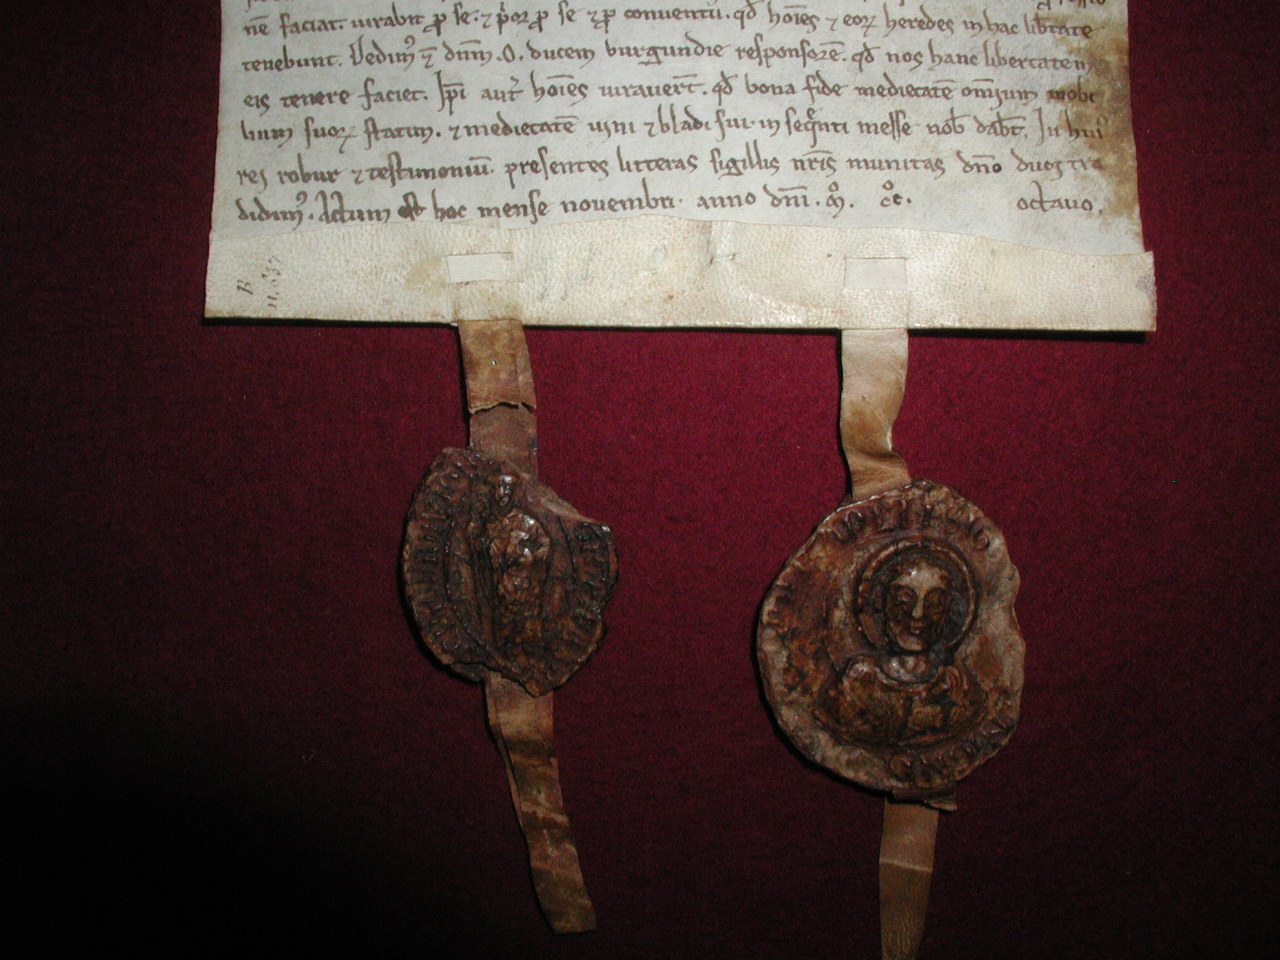 nē faciat. iurabit ꝓ se. ⁊ p̄or ꝓ se ⁊ ꝓ conuentu. qd̄ hoīes ⁊ eoꝝ heredes in hac lib̄tate
tenebunt. Dedimꝰ ⁊ dn̄m .O. ducem burgundie responsorē. qd̄ nos hanc libertatem
eis tenere faciet. Ip̄i aut̄ hoīes iurauer̄t. qd̄ bona fide medietatē om̄ium mobi
lium suoꝝ statim. ⁊ medietatē uini ⁊ bladi sui in seq̄nti messe nob̄ dab̄t. In huiꝰ
rei robur ⁊ testimoniū. presentes litteras sigillis nr̄is munitas dn̄o duci tra
didimꝰ. Actum est hoc mense nouembri. anno dn̄i. m̊. c̊c. octauo.
B